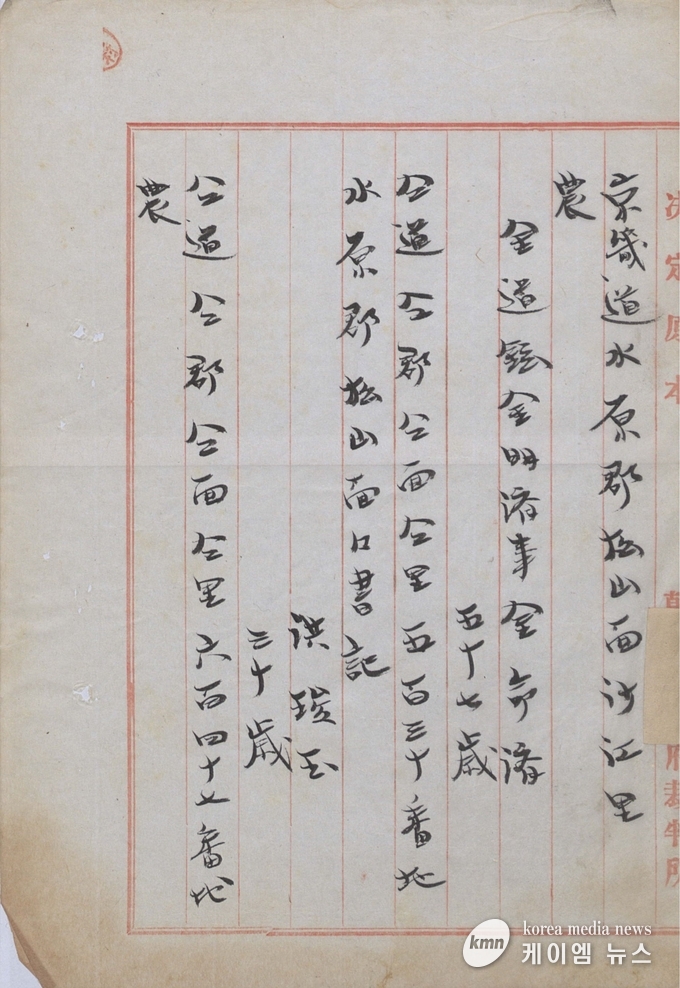 决定原本 府裁判所
京畿道水原郡松山面沙江里
農
金道 金明濟事金命濟
五十七歳
仝道仝郡仝面仝里五百三十番地
水原郡松山面 書記
洪 玉
三十歳
仝道仝郡仝面仝里六百四十七番地
農
kmn korea media news
케이엠 뉴스